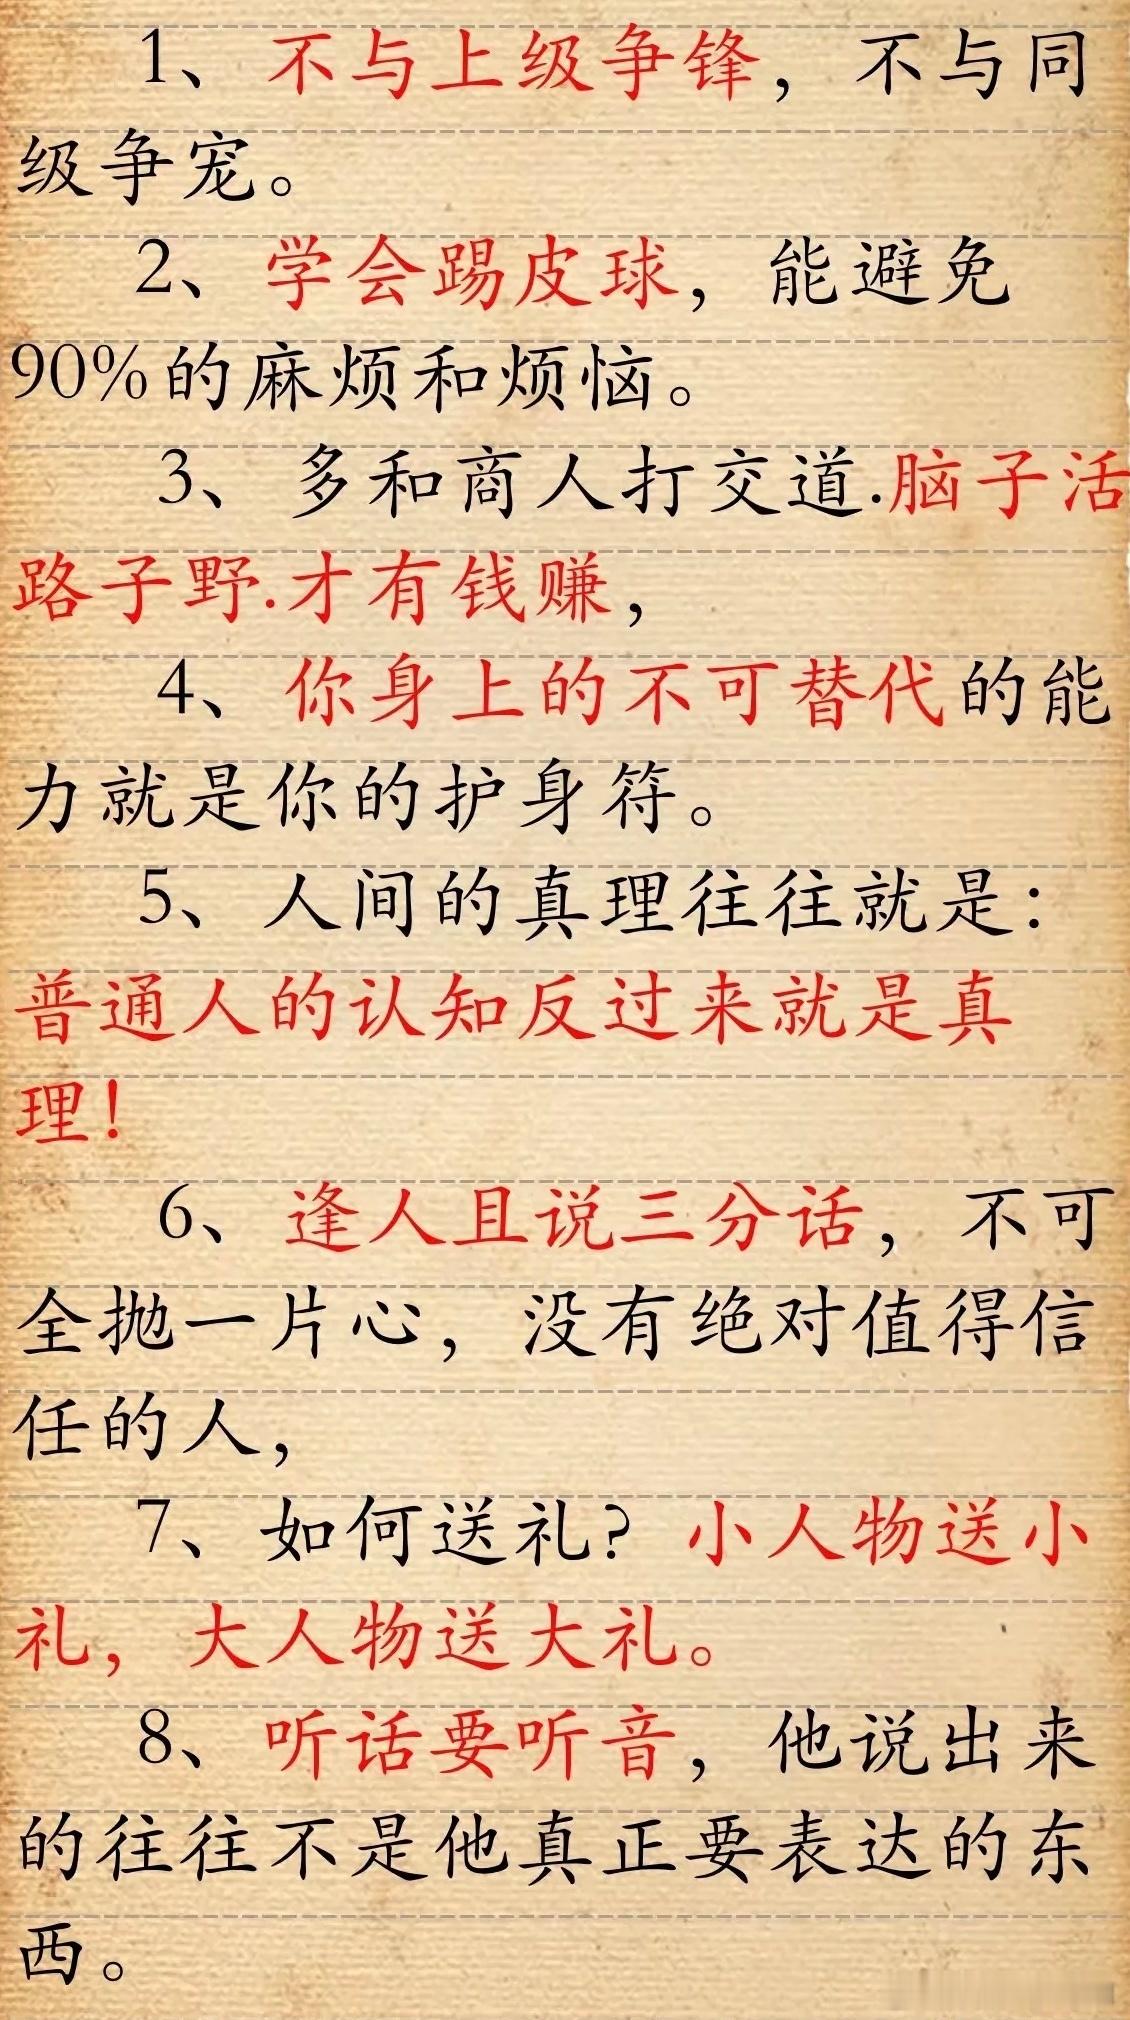 1、不与上级争锋，不与同
级争宠。
2、学会踢皮球，能避免
90%的麻烦和烦恼。
3、多和商人打交道.脑子活
路子野.才有钱赚，
4、你身上的不可替代的能
力就是你的护身符。
5、人间的真理往往就是：
普通人的认知反过来就是真
理！
6、逢人且说三分话，不可
全抛一片心，没有绝对值得信
任的人，
7、如何送礼？小人物送小
礼，大人物送大礼。
8、听话要听音，他说出来
的往往不是他真正要表达的东
西。